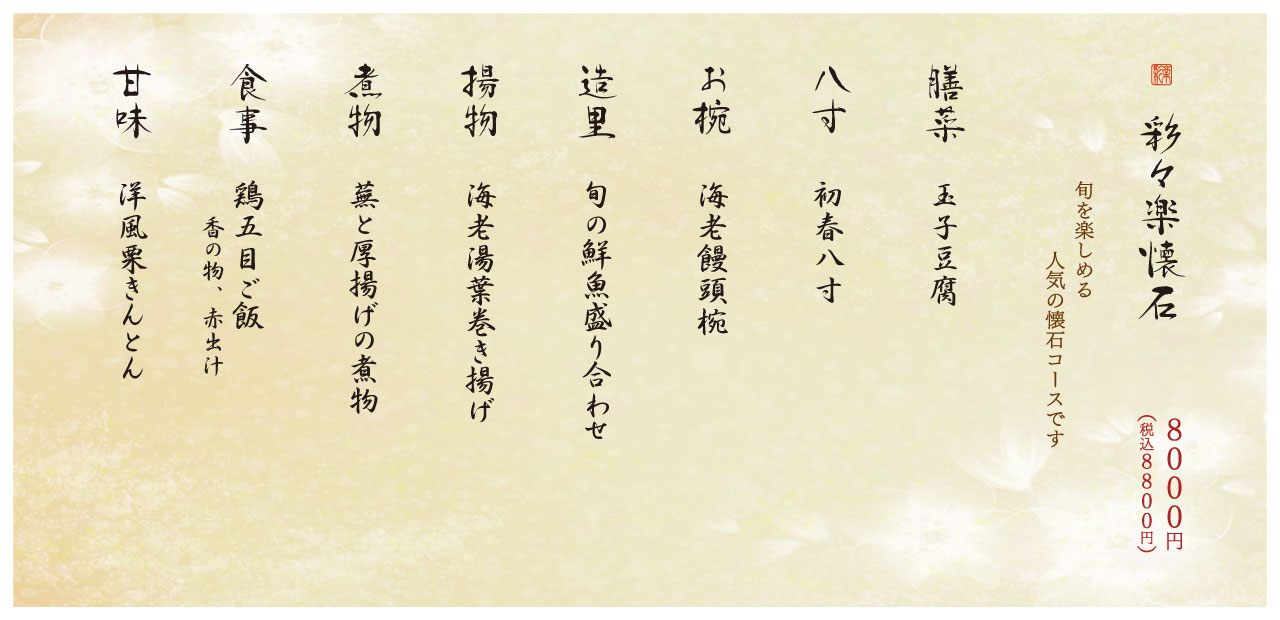 彩々楽懐石
8000円
(税込8800円)
旬を楽しめる
人気の懐石コースです
膳菜 玉子豆腐
八寸 初春八寸
お椀 海老饅頭椀
造里 旬の鮮魚盛り合わせ
揚物 海老湯葉巻き揚げ
煮物 蕪と厚揚げの煮物
食事 鶏五目ご飯
香の物、赤出汁
甘味 洋風栗きんとん